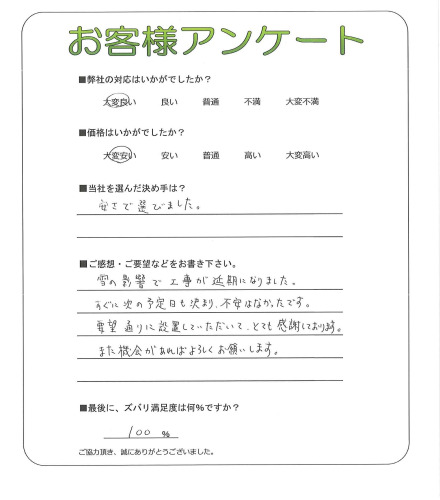 お客様アンケート
■弊社の対応はいかがでしたか？
大変良い 良い 普通 不満 大変不満
■価格はいかがでしたか？
大変安い 安い 普通 高い 大変高い
■当社を選んだ決め手は？
安さで選びました。
■ご感想・ご要望などをお書き下さい。
雪の影響で工事が延期になりました。
すぐに次の予定日も決まり、不安はなかったです。
要望通りに設置していただいて、とても感謝しております。
また機会があればよろしくお願いします。
■最後に、ズバリ満足度は何%ですか？
100 %
ご協力頂き、誠にありがとうございました。